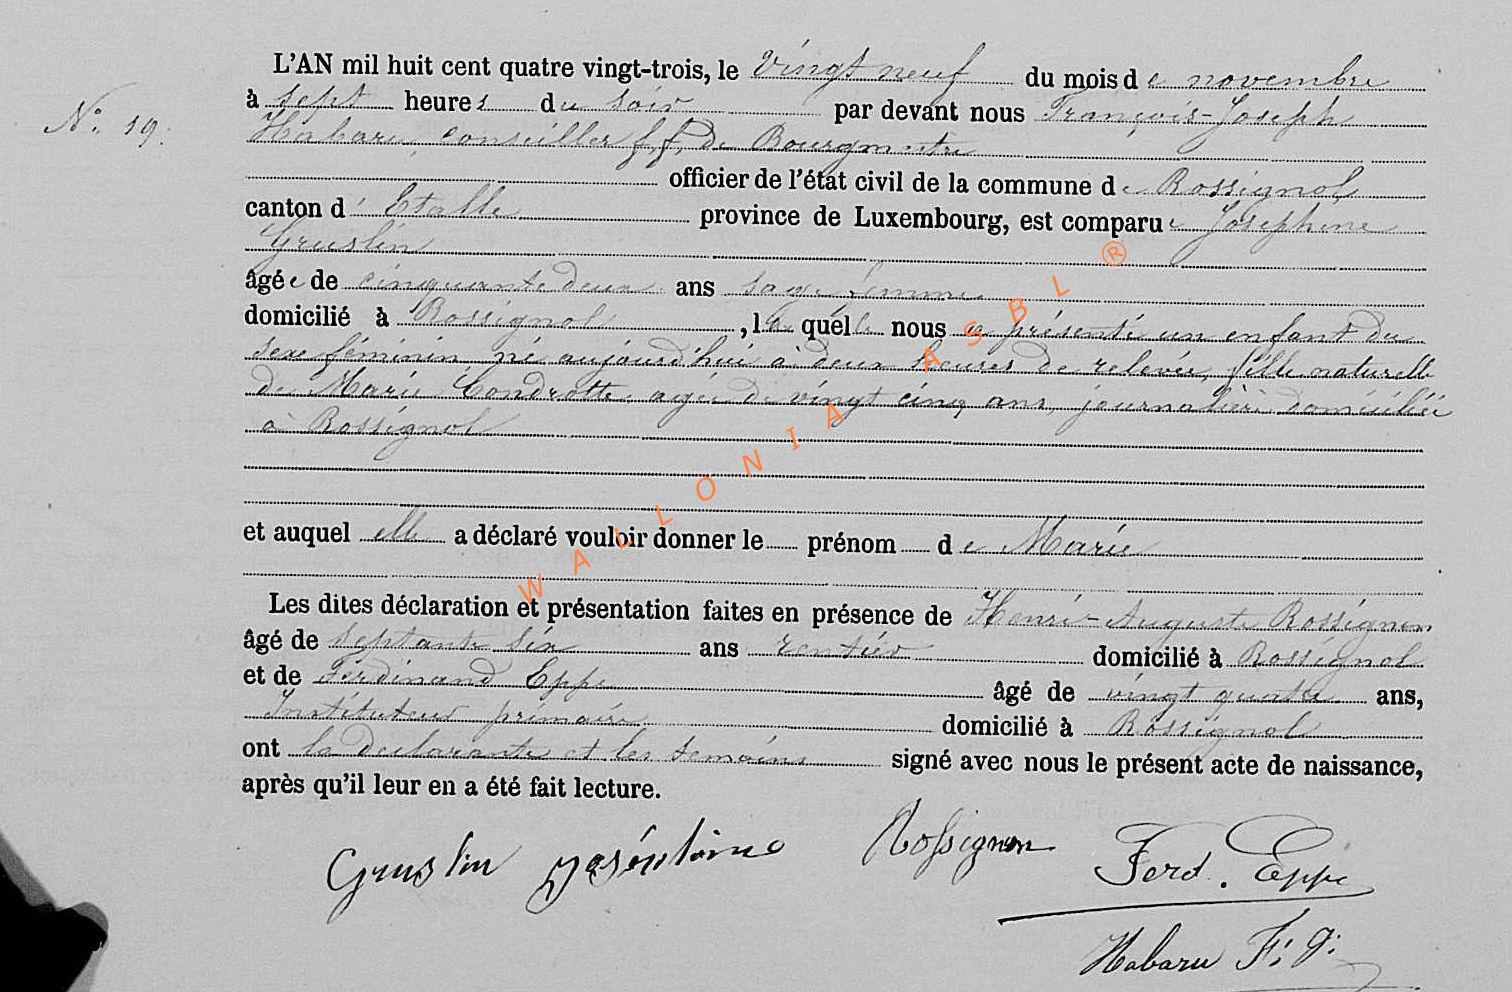 L'AN mil huit cent quatre vingt-trois, le vingt neuf du mois de novembre
N° 19.
à sept heures du soir par devant nous François-Joseph
Habaru, conseiller f.f. de Bourgmestre
officier de l'état civil de la commune de Rossignol
canton d'Etalle province de Luxembourg, est comparue Joséphine
Gruslin
âgée de cinquante deux ans sage femme
domicilié à Rossignol, laquelle nous a présenté un enfant du
sexe féminin né aujourd'hui à deux heures de relevée, fille naturelle
de Marie Condrotte agée de vingt cinq ans, journalière domiciliée
à Rossignol
et auquel elle a déclaré vouloir donner le prénom de Marie
Les dites déclaration et présentation faites en présence de Henri-Auguste Rossignon
âgé de septante six ans rentier domicilié à Rossignol
et de Ferdinand Eppe âgé de vingt quatre ans,
Instituteur primaire domicilié à Rossignol
ont la déclarante et les témoins signé avec nous le présent acte de naissance,
après qu'il leur en a été fait lecture.
Gruslin joséphine Rossignon Ferd. Eppe
Habaru F. J.
WALLONIA ASBL ®